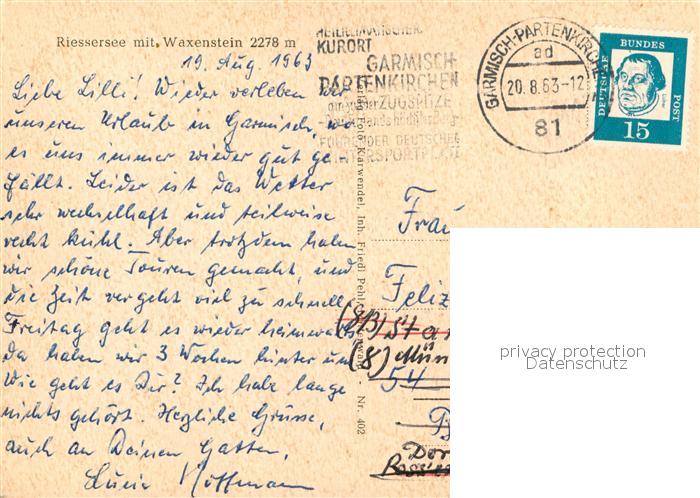 Riessersee mit Waxenstein 2278 m
19. Aug. 1963
Liebe Lilli! Wieder verleben wir
unseren Urlaub in Garmisch, wo
es uns immer wieder gut ge-
fällt. Leider ist das Wetter
sehr wechselhaft und teilweise
recht kühl. Aber trotzdem haben
wir schöne Touren gemacht, und
die Zeit vergeht viel zu schnell.
Freitag geht es wieder heimwärts
da haben wir 3 Wochen hinter uns
Wie geht es Dir? Ich habe lange
nichts gehört. Herzliche Grüsse,
auch an Deinen Gatten,
Lucie Hoffmann
HEILKLIMATISCHER
KURORT
GARMISCH-
PARTENKIRCHEN
ZUGSPITZE
DER DEUTSCHE
WINTERSPORTPLATZ
GARMISCH-PARTENKIRCHEN
ad
20.8.63-12
81
DEUTSCHE
BUNDES
POST
15
Verlag Foto Karwendel, Inh. Friedl Pehl
Nr. 402
Frau
Feliz
(8)
54
Dor
privacy protection
Datenschutz